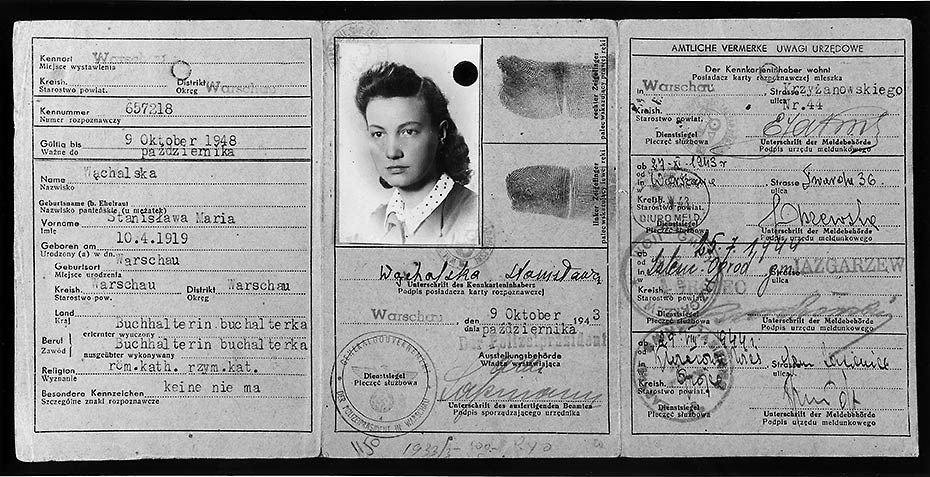 Kennort
Miejsce wystawienia
Kreish. Distrikt
Starostwo powiat. Okręg Warschau
Kennummer 657218
Numer rozpoznawczy
Gültig bis 9 Oktober 1948
Ważne do października
Name Wąchalska
Nazwisko
Geburtsname (b. Ehefrau)
Nazwisko panieńskie (u mężatek)
Vorname Stanisława Maria
Imię
Geboren am 10.4.1919
Urodzony (a) w dn.
Geburtsort Warschau
Miejsce urodzenia
Kreish. Warschau Distrikt Warschau
Starostwo pow. Okręg
Land
Kraj
Beruf erlernter wyuczony Buchhalterin buchalterka
Zawód ausgeübter wykonywany Buchhalterin buchalterka
Religion röm.kath. rzym.kat.
Wyznanie
Besondere Kennzeichen keine nie ma
Szczególne znaki rozpoznawcze
rechter Zeigefinger
palec wskazujący prawej ręki
linker Zeigefinger
palec wskazujący lewej ręki
Wąchalska Stanisława
Unterschrift des Kennkarteninhabers
Podpis posiadacza karty rozpoznawczej
Warschau, den 9 Oktober 1943
dnia października
Der Polizeipräsident
Ausstellungsbehörde
Władza wystawiająca
Dienstsiegel
Pieczęć służbowa
GENERALGOUVERNEMENT
DER POLIZEIPRÄSIDENT IN WARSCHAU
Unterschrift des ausfertigenden Beamten
Podpis sporządzającego urzędnika
1150
AMTLICHE VERMERKE UWAGI URZĘDOWE
Der Kennkarteninhaber wohnt
Posiadacz karty rozpoznawczej mieszka
in Warschau Strasse Krzyżanowskiego
w ulica Nr.44
Kreish.
Starostwo powiat.
Dienstsiegel Unterschrift der Meldebehörde
Pieczęć służbowa Podpis urzędu meldunkowego
ab 27.XI.1943 r
od
in Warszawie Strasse Twarda 36.
w ulica
Kreish.
Starostwo powiat.
BIURO MELD.
Dienstsiegel Unterschrift der Meldebehörde
Pieczęć służbowa Podpis urzędu meldunkowego
ab 25.7.1944
od
in JAZGARZEW
w ulica
Kreish.
Starostwo powiat.
Dienstsiegel Unterschrift der Meldebehörde
Pieczęć służbowa Podpis urzędu meldunkowego
ab
od
in Strasse
w ulica
Kreish.
Starostwo powiat.
Dienstsiegel Unterschrift der Meldebehörde
Pieczęć służbowa Podpis urzędu meldunkowego